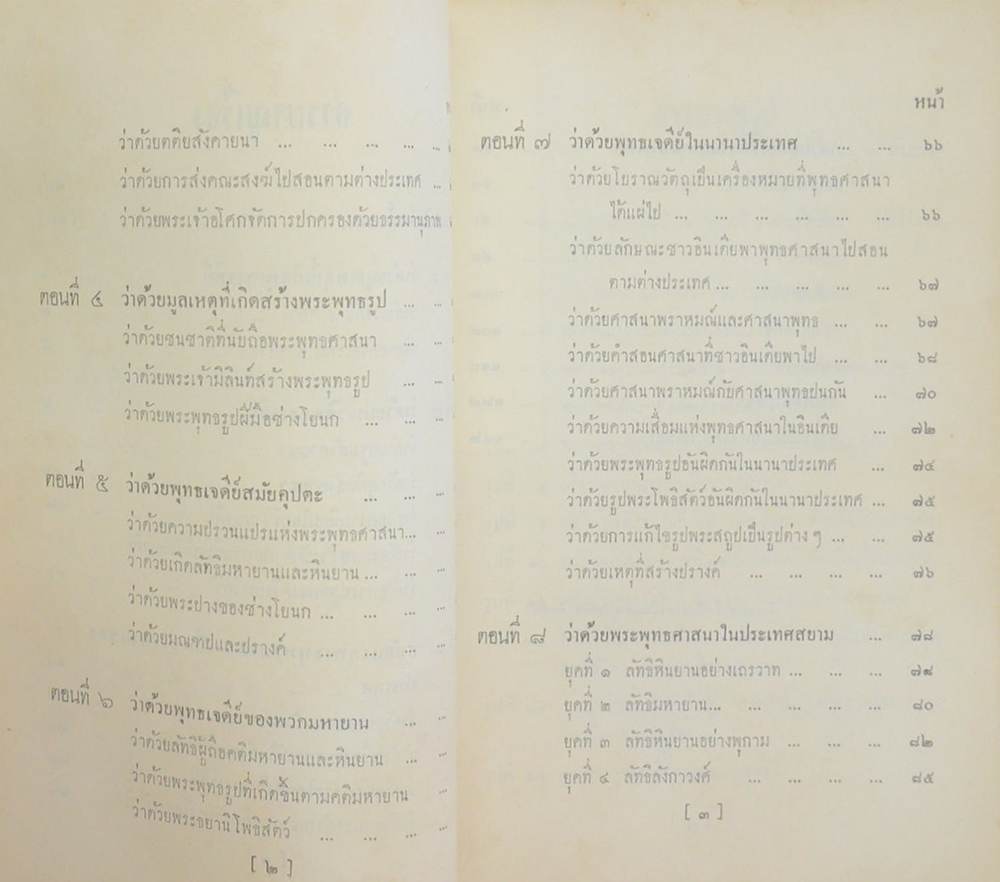 ว่าด้วยตติยสังคายนา ... ... ... ... ...
ว่าด้วยการส่งคณะสงฆ์ไปสอนตามต่างประเทศ ...
ว่าด้วยพระเจ้าอโศกจัดการปกครองด้วยธรรมานุภาพ
ตอนที่ ๔ ว่าด้วยมูลเหตุที่เกิดสร้างพระพุทธรูป ... ...
ว่าด้วยชนชาติที่นับถือพระพุทธศาสนา ... ...
ว่าด้วยพระเจ้ามิลินท์สร้างพระพุทธรูป ... ...
ว่าด้วยพระพุทธรูปฝีมือช่างโยนก ... ... ...
ตอนที่ ๕ ว่าด้วยพุทธเจดีย์สมัยคุปตะ ... ... ...
ว่าด้วยความปรวนแปรแห่งพระพุทธศาสนา... ...
ว่าด้วยเกิดลัทธิมหายานและหินยาน ... ... ...
ว่าด้วยพระปางของช่างโยนก ... ... ... ...
ว่าด้วยมณฑปและปรางค์ ... ... ... ...
ตอนที่ ๖ ว่าด้วยพุทธเจดีย์ของพวกมหายาน ... ...
ว่าด้วยลัทธิผู้ถือคติมหายานและหินยาน ... ...
ว่าด้วยพระพุทธรูปที่เกิดขึ้นตามคติมหายาน ...
ว่าด้วยพระธยานิโพธิสัตว์ ... ... ... ...
[ ๒ ]
หน้า
ตอนที่ ๗ ว่าด้วยพุทธเจดีย์ในนานาประเทศ ... ... ๖๖
ว่าด้วยโบราณวัตถุเป็นเครื่องหมายที่พุทธศาสนา
ได้แผ่ไป ... ... ... ... ... ... ๖๖
ว่าด้วยลักษณะชาวอินเดียพาพุทธศาสนาไปสอน
ตามต่างประเทศ ... ... ... ... ... ๖๗
ว่าด้วยศาสนาพราหมณ์และศาสนาพุทธ ... ... ๖๗
ว่าด้วยคำสอนศาสนาที่ชาวอินเดียพาไป ... ... ๖๘
ว่าด้วยศาสนาพราหมณ์กับศาสนาพุทธปนกัน ... ๗๐
ว่าด้วยความเสื่อมแห่งพุทธศาสนาในอินเดีย ... ๗๒
ว่าด้วยพระพุทธรูปอันผิดกันในนานาประเทศ ... ๗๔
ว่าด้วยรูปพระโพธิสัตว์อันผิดกันในนานาประเทศ ... ๗๕
ว่าด้วยการแก้ไขรูปพระสถูปเป็นรูปต่าง ๆ ... ... ๗๕
ว่าด้วยเหตุที่สร้างปรางค์ ... ... ... ... ๗๖
ตอนที่ ๘ ว่าด้วยพระพุทธศาสนาในประเทศสยาม ... ๗๘
ยุคที่ ๑ ลัทธิหินยานอย่างเถรวาท ... ... ... ๗๙
ยุคที่ ๒ ลัทธิมหายาน... ... ... ... ... ๘๐
ยุคที่ ๓ ลัทธิหินยานอย่างพุกาม ... ... ... ๘๒
ยุคที่ ๔ ลัทธิลังกาวงศ์ ... ... ... ... ๘๕
[ ๓ ]